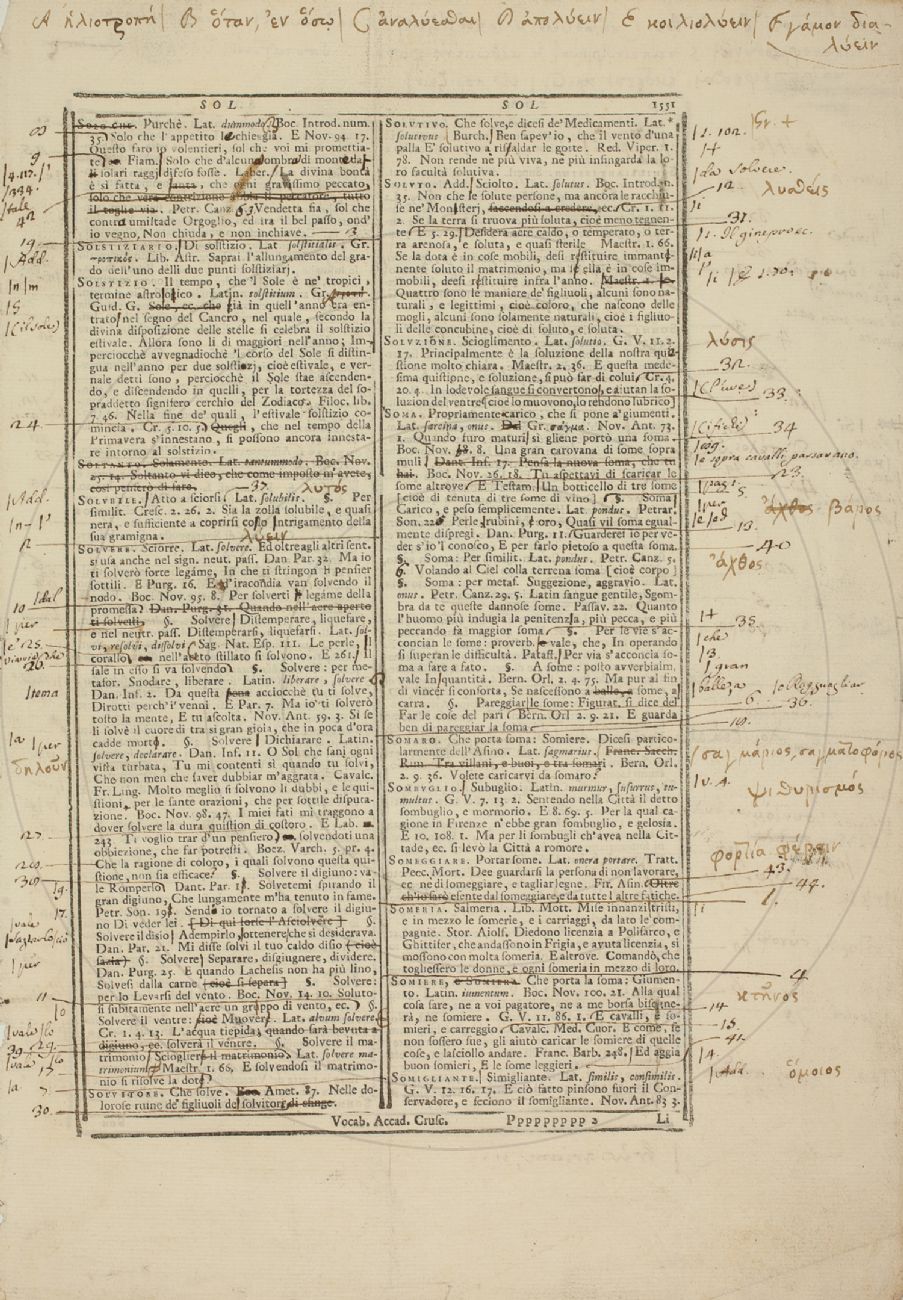 A ἡλιοτροπή / B ὅταν, ἐν ὅσῳ / C ἀναλύεσθαι / D ἀπολύειν / E κοιλιολύειν / F γάμον δια-
λύειν
SOL SOL 1551
SOLO CHE. Purchè. Lat. dummodo. Boc. Introd. num.
35. Solo che l'appetito le chieggia. E Nov. 94. 17.
Questo farò io volentieri, sol che voi mi promettia-
te Fiam. Solo che d'alcuna ombra di monte da
i solari raggi difeso fosse. Laber. La divina bontà
è sì fatta, e tanta, che ogni gravissimo peccato,
solo che vera contrizione abbia il peccatore, tutto
il toglie via. Petr. Canz. 6. 3. Vendetta fia, sol che
contra umiltade Orgoglio, ed ira il bel passo, ond'
io vegno, Non chiuda, e non inchiave.
SOLSTIZIARIO. Di solstizio. Lat. solstitialis. Gr.
Lib. Astr. Saprai l'allungamento del gra-
do dell'uno delli due punti solstiziarj.
SOLSTIZIO. Il tempo, che 'l Sole è ne' tropici,
termine astrologico. Latin. solstitium. Gr.
Guid. G. Sole, ec. che già in quell'anno era en-
trato nel segno del Cancro, nel quale, secondo la
divina disposizione delle stelle si celebra il solstizio
estivale. Allora sono li dì maggiori nell'anno; Im-
perciocchè avvegnadiochè 'l corso del Sole si distin-
gua nell'anno per due solstizj, cioè estivale, e ver-
nale detti sono, perciocchè il Sole stae ascenden-
do, e discendendo in quelli, per la tortezza del so-
praddetto signifero cerchio del Zodiaco. Filoc. lib.
7. 46. Nella fine de' quali, l'estivale solstizio co-
mincia. Cr. 5. 10. 5. Quegli, che nel tempo della
Primavera s'innestano, si possono ancora innesta-
re intorno al solstizio.
SOLTANTO. Solamente. Lat. tantummodo. Boc. Nov.
25. 14. Soltanto vi dico, che come imposto m'avete,
così penserò di fare. 37. λυτός
SOLVBILE. Atto a sciorsi. Lat. solubilis. §. Per
similit. Cresc. 2. 26. 2. Sia la zolla solubile, e quasi
nera, e sufficiente a coprirsi collo 'ntrigamento della
sua gramigna. λύειν
SOLVERE. Sciorre. Lat. solvere. Ed oltre agli altri sent.
si usa anche nel sign. neut. pass. Dan. Par. 32. Ma io
ti solverò forte legáme, In che ti stringon li pensier
sottili. E Purg. 16. E d'iracondia van solvendo il
nodo. Boc. Nov. 95. 8. Per solverti il legáme della
promessa. Dan. Purg. 31. Quando nell'aere aperto
ti solvesti. §. Solvere. Distemperare, liquefare,
e nel neutr. pass. Distemperarsi, liquefarsi. Lat. sol-
vi, resolvi, dissolvi. Sag. Nat. Esp. 111. Le perle, il
corallo nell'aceto stillato si solvono. E 261. Il
sale in esso si va solvendo. §. Solvere: per me-
tafor. Snodare, liberare. Latin. liberare, solvere.
Dan. Inf. 2. Da questa tema acciocchè tu ti solve,
Dirotti perch'i' venni. E Par. 7. Ma io ti solverò
tosto la mente, E tu ascolta. Nov. Ant. 59. 3. Sì se
li solvè il cuore di tra sì gran gioia, che in poca d'ora
cadde morto. §. Solvere. Dichiarare. Latin.
solvere, declarare. Dan. Inf. 11. O Sol che sani ogni
vista turbata, Tu mi contenti sì quando tu solvi,
Che non men che saver dubbiar m'aggrata. Cavalc.
Fr. Ling. Molto meglio si solvono li dubbi, e le qui-
stioni, per le sante orazioni, che per sottile disputa-
zione. Boc. Nov. 98. 47. I miei fati mi traggono a
dover solvere la dura quistion di costoro. E Lab.
243 Ti voglio trar d'un pensiero, solvendoti una
obbiezione, che far potresti. Boez. Varch. 5. pr. 4.
Che la ragione di coloro, i quali solvono questa qui-
stione, non sia efficace. §. Solvere il digiuno: va-
le Romperlo. Dant. Par. 15. Solvetemi spirando il
gran digiuno, Che lungamente m'ha tenuto in fame.
Petr. Son. 19. Sendo io tornato a solvere il digiu-
no Di veder lei. [Di qui forse l'Asciolvere] §.
Solvere il disio. Adempirlo, ottenere che si desiderava.
Dan. Par. 21. Mi disse solvi il tuo caldo disio [cioè
sazia] §. Solvere. Separare, disgiugnere, dividere.
Dan. Purg. 25. E quando Lachesis non ha più lino,
Solvesi dalla carne [cioè si sepera] §. Solvere:
per lo Levarsi del vento. Boc. Nov. 14. 10. Soluto-
si subitamente nell'aere un groppo di vento, ec. §.
Solvere il ventre: cioè Muovere. Lat. alvum solvere.
Cr. 1. 4. 13. L'acqua tiepida, quando sarà bevuta a
digiuno, ec. solverà il ventre. §. Solvere il ma-
trimonio. Sciogliere il matrimonio. Lat. solvere ma-
trimonium. Maestr. 1. 66. E solvendosi il matrimo-
nio si risolve la dota.
SOLVITORE. Che solve. Boc. Amet. 87. Nelle do-
lorose ruine de' figliuoli del solvitore di sfinge.
SOLVTIVO. Che solve, e dicesi de' Medicamenti. Lat.
solutivus. Burch. Ben sapev'io, che il vento d'una
palla E' solutivo a riscaldar le gotte. Red. Viper. 1.
78. Non rende nè più viva, nè più infingarda la lo-
ro facultà solutiva.
SOLVTO. Add. Sciolto. Lat. solutus. Boc. Introd. n.
35. Non che le solute persone, ma ancora le racchiu-
se ne' Monisterj, faccendosi a credere, ec. Cr. 1. 11.
2. Se la terra si truova più soluta, cioè meno tegnen-
te. E 5. 29. Desidera aere caldo, o temperato, o ter-
ra arenosa, e soluta, e quasi sterile. Maestr. 1. 66.
Se la dota è in cose mobili, desi restituire immante-
nente soluto il matrimonio, ma se ella è in cose im-
mobili, deesi restituire infra l'anno. Maestr. 2.
Quattro sono le maniere de' figliuoli, alcuni sono na-
turali, e legittimi, cioè coloro, che nascono delle
mogli, alcuni sono solamente naturali, cioè i figliuo-
li delle concubine, cioè di soluto, e soluta.
SOLVZIONE. Scioglimento. Lat. solutio. G. V. 11. 2.
17. Principalmente è la soluzione della nostra qui-
stione molto chiara. Maestr. 2. 36. E questa mede-
sima quistione, e soluzione, si può far di colui. Cr. 4.
20. 4. In lodevole sangue si convertono, e aiutan la so-
luzion del ventre [cioè lo muovono, lo rendono lubrico]
SOMA. Propriamente carico, che si pone a' giumenti.
Lat. sarcina, onus. Dal Gr. σάγμα. Nov. Ant. 73.
1. Quando furo maturi, sì gliene portò una soma.
Boc. Nov. 8. 8. Una gran carovana di some sopra
muli. Dant. Inf. 17. Pensa la nuova soma, che tu
hai. Boc. Nov. 26. 18. Tu aspettavi di scaricar le
some altrove. E Testam. Un botticello di tre some
[cioè di tenuta di tre some di vino] §. Soma.
Carico, e peso semplicemente. Lat. pondus. Petrar.
Son. 22. Perle, rubini, e oro, Quasi vil soma egual-
mente dispregi. Dan. Purg. 11. Guarderei io per ve-
der s'io 'l conosco, E per farlo pietoso a questa soma.
§. Soma: Per similit. Lat. pondus. Petr. Canz. 5.
6. Volando al Ciel colla terrena soma [cioè corpo]
§. Soma: per metaf. Suggezione, aggravio. Lat.
onus. Petr. Canz. 29. 5. Latin sangue gentile, Sgom-
bra da te queste dannose some. Passav. 22. Quanto
l'huomo più indugia la penitenza, più pecca, e più
peccando fa maggior soma. §. Per le vie s'ac-
concian le some: proverb. e vale, che, In operando
si superan le difficultà. Pataff. Per via s'acconcia so-
ma a fare a fato. §. A some: posto avverbialm.
vale In quantità. Bern. Orl. 2. 4. 75. Ma pur al fin
di vincer si conforta, Se nascessono a balle, o some, a
carra. §. Pareggiar le some: Figurat. si dice del
Far le cose del pari. Bern. Orl. 2. 9. 21. E guarda
ben di pareggiar la soma.
SOMARO. Che porta soma: Somiere. Dicesi partico-
larmente dell'Asino. Lat. sagmarius. Franc. Sacch.
Rim. Tra villani, e buoi, e tra somari. Bern. Orl.
2. 9. 36. Volete caricarvi da somaro?
SOMBVGLIO. Subuglio. Latin. murmur, susurrus, tu-
multus. G. V. 7. 13. 2. Sentendo nella Città il detto
sombuglio, e mormorio. E 8. 69. 5. Per la qual ca-
gione in Firenze n'ebbe gran sombuglio, e gelosia.
E 10. 108. 1. Ma per li sombugli ch'avea nella Cit-
tade, ec. si levò la Città a romore.
SOMEGGIARE. Portar some. Lat. onera portare. Tratt.
Pecc. Mort. Dee guardarsi la persona di non lavorare,
ec. nè di someggiare, e tagliar legne. Fir. Asin. Oltre
ch'io sarò esente dal someggiare, e da tutte l'altre fatiche.
SOMERIA. Salmeria. Lib. Mott. Mise innanzi tristi,
e in mezzo le somerie, e i carriaggi, da lato le com-
pagnie. Stor. Aiolf. Diedono licenza a Polifarco, e
Ghittifer, che andassono in Frigia, e avuta licenza, si
mossono con molta someria. E altrove. Comandò, che
togliessero le donne, e ogni someria in mezzo di loro.
SOMIERE, e SOMIERA. Che porta soma: Giumen-
to. Latin. iumentum. Boc. Nov. 100. 21. Alla qual
cosa fare, nè a voi pagatore, nè a me borsa bisogne-
rà, nè somiere. G. V. 11. 86. 1. E cavalli, e so-
mieri, e carreggio. Cavalc. Med. Cuor. E come, se
non fossero sue, gli aiutò caricar le somiere di quelle
cose, e lasciollo andare. Franc. Barb. 248. Ed aggia
buon somieri, E le some leggieri.
SOMIGLIANTE. Simigliante. Lat. similis, consimilis.
G. V. 12. 16. 17. E ciò fatto pinsono fuori il Con-
servadore, e feciono il somigliante. Nov. Ant. 83 3.
Vocab. Accad. Crusc. Ppppppppp 2 Li
9
42
19
/ Add.
15
/ (il sole)
24
/ Add.
10
/ per
26
/ tema
δηλοῦν
127
30
17
/ per
11
29
30.
Gr. +
/ da solvere.
12.
λυθείς
31.
/ c. Il gineproec.
λύσις
32.
/ (l'uve) 33.
34
23.
ἄχθος βάρος
13.
40
ἄχθος
35.
/ che
/ gran
/ balleza
6.
36.
10.
/ σαγμάριος, σαγματοφόρος
/ v. 4.
ψιθυρισμός
φορτία φέρειν
43.
44.
1.
4.
κτῆνος
14
15.
41.
/ 4.
/ Add. ὅμοιος